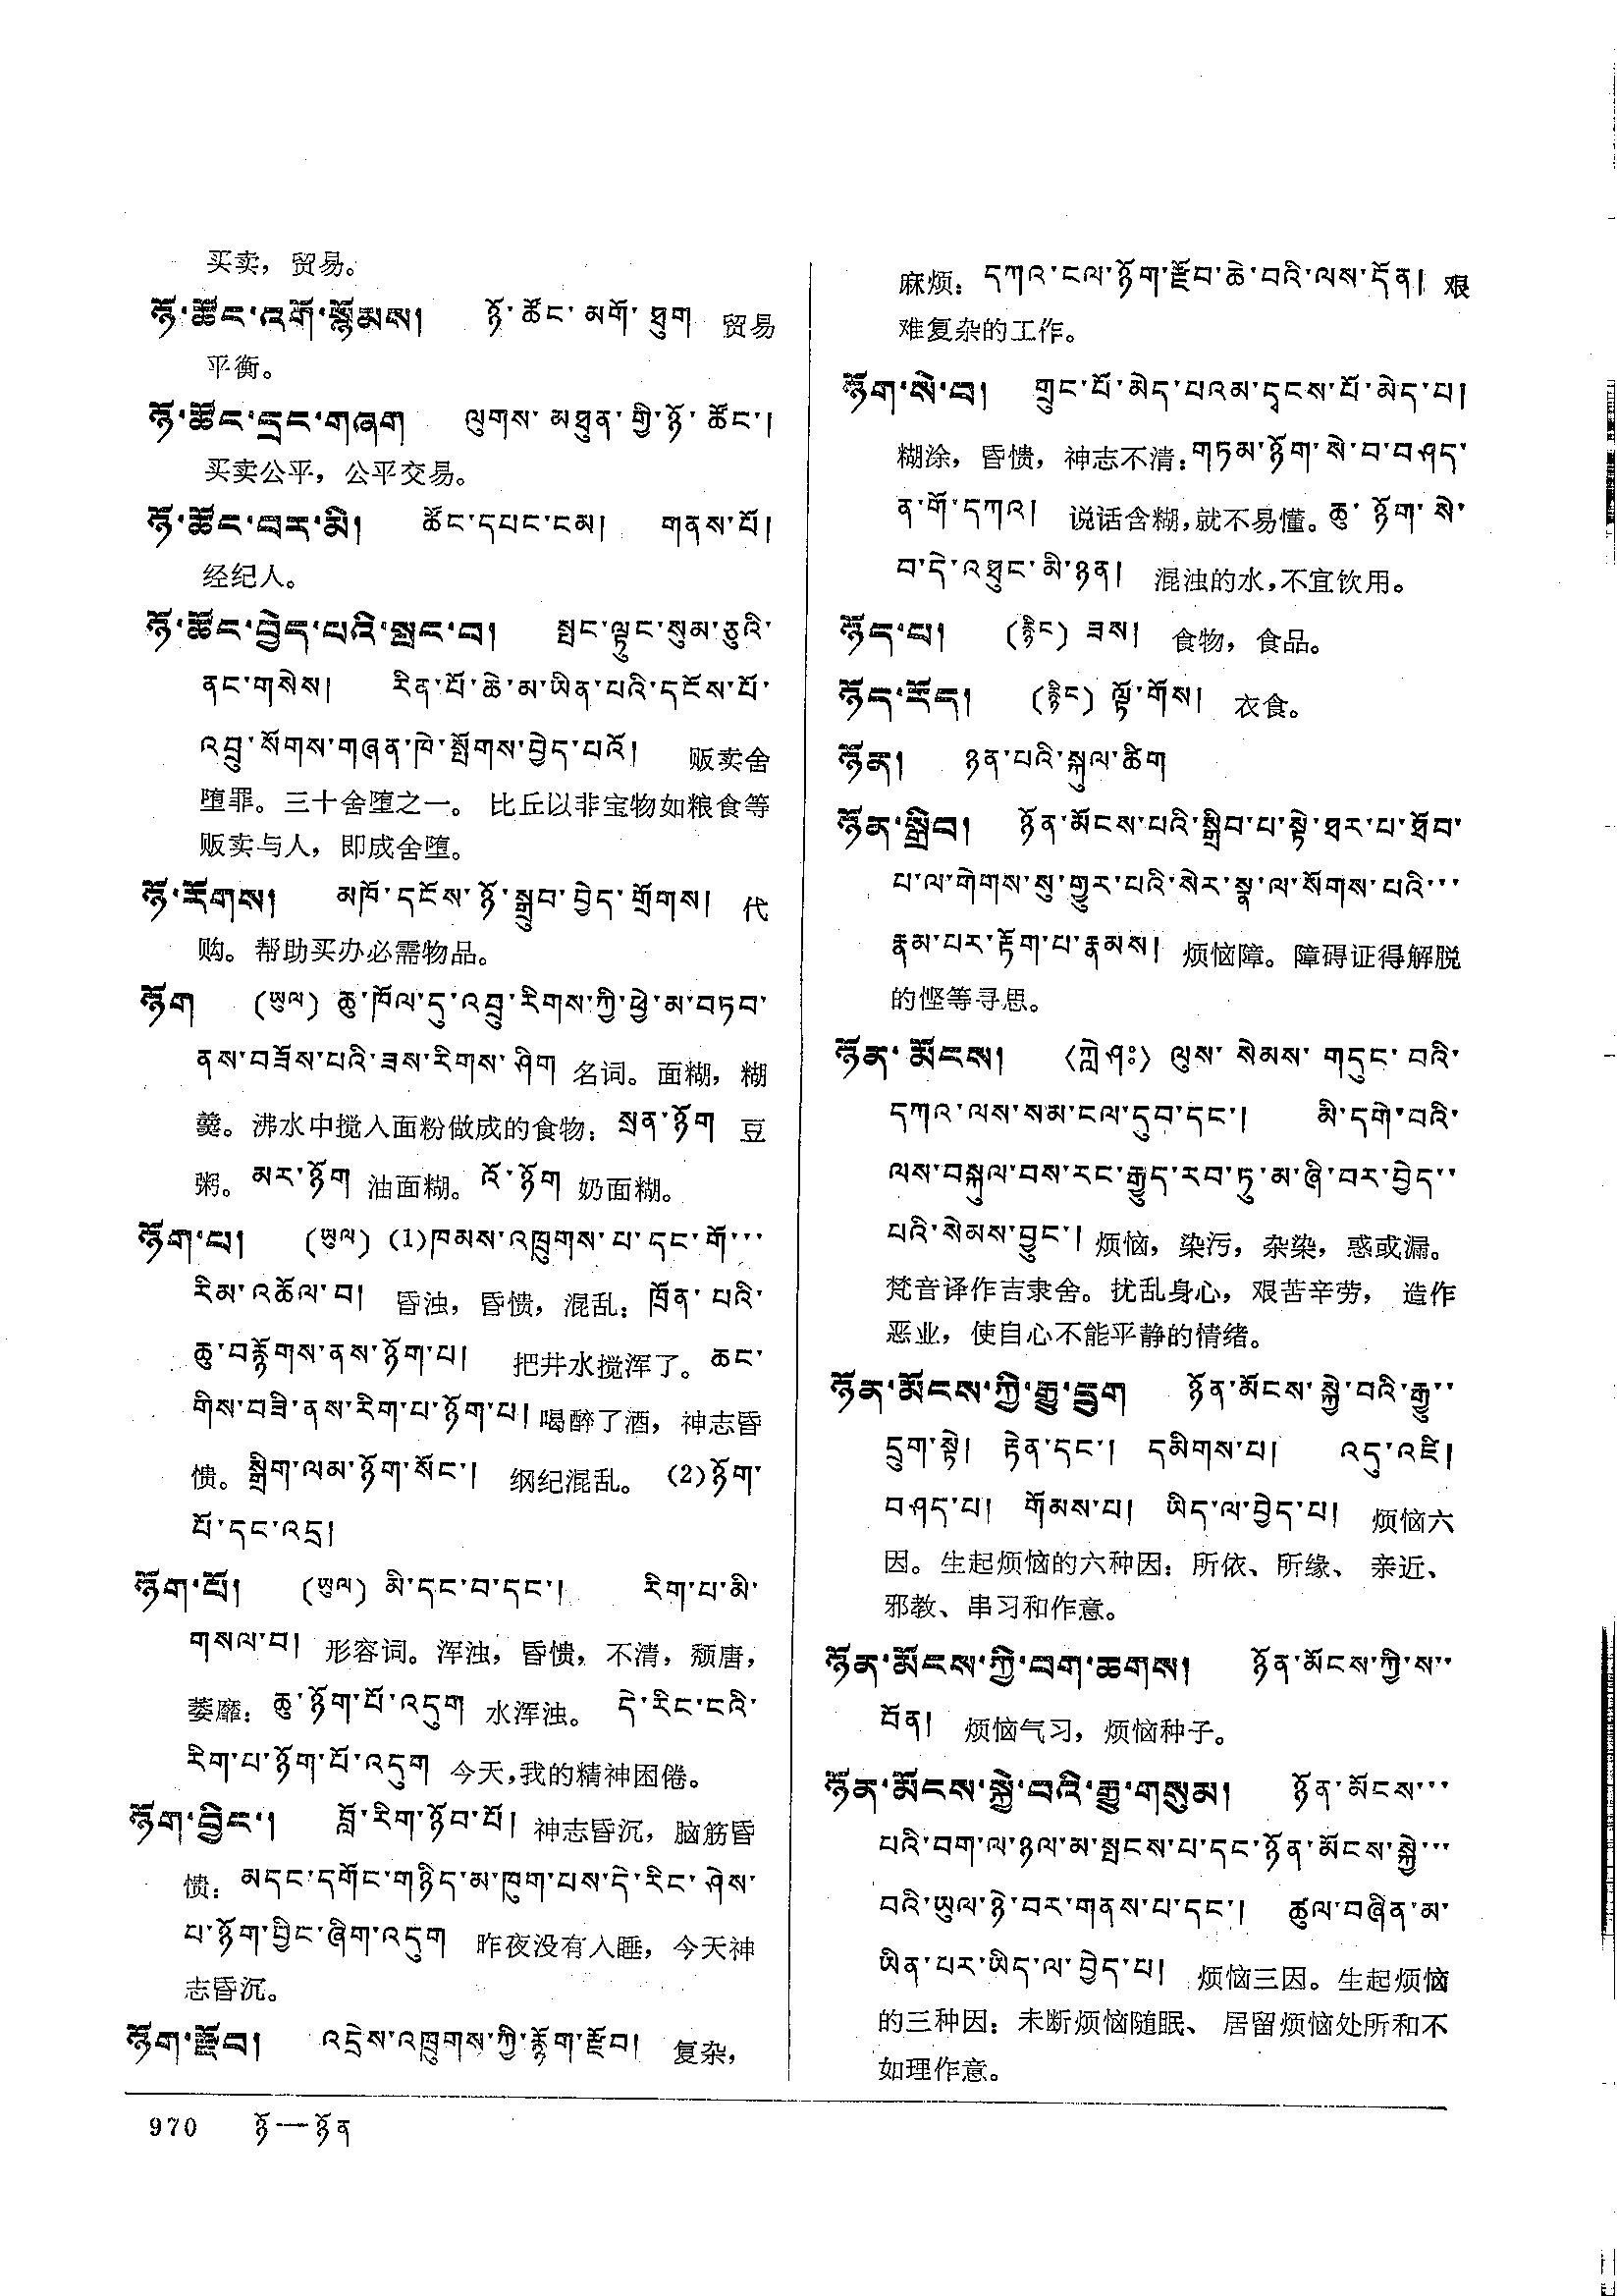 买卖，贸易。
ཉོ་ཚོང་འགོ་སྙོམས། ཉོ་ཚོང་མགོ་ཐུག 贸易
平衡。
ཉོ་ཚོང་དྲང་གཞག ལུགས་མཐུན་གྱི་ཉོ་ཚོང་།
买卖公平，公平交易。
ཉོ་ཚོང་བར་མི། ཚོང་དཔང་ངམ། གནས་པོ།
经纪人。
ཉོ་ཚོང་བྱེད་པའི་སྤང་བ། སྤང་ལྟུང་སུམ་ཅུའི་
ནང་གསེས། རིན་པོ་ཆེ་མ་ཡིན་པའི་དངོས་པོ་
འབྲུ་སོགས་གཞན་ཁེ་སྤོགས་བྱེད་པའོ། 贩卖舍
堕罪。三十舍堕之一。 比丘以非宝物如粮食等
贩卖与人，即成舍堕。
ཉོ་རོགས། མཁོ་དངོས་ཉོ་སྒྲུབ་བྱེད་གྲོགས། 代
购。帮助买办必需物品。
ཉོག (ཡུལ) ཆུ་ཁོལ་དུ་འབྲུ་རིགས་ཀྱི་ཕྱེ་མ་བཏབ་
ནས་བཟོས་པའི་ཟས་རིགས་ཤིག 名词。面糊，糊
羹。沸水中搅入面粉做成的食物：སྲན་ཉོག 豆
粥。མར་ཉོག 油面糊。འོ་ཉོག 奶面糊。
ཉོག་པ། (ཡུལ) (1)ཁམས་འཁྲུགས་པ་དང་གོ་་་
རིམ་འཚོལ་བ། 昏浊，昏愦，混乱：ཁྲོན་པའི་
ཆུ་བརྙོགས་ནས་ཉོག་པ། 把井水搅浑了。ཆང་
གིས་བཟི་ནས་རིག་པ་ཉོག་པ། 喝醉了酒，神志昏
愦。སྒྲིག་ལམ་ཉོག་སོང་། 纲纪混乱。(2)ཉོག་
པོ་དང་འདྲ།
ཉོག་པོ། (ཡུལ) མི་དང་བ་དང་། རིག་པ་མི་
གསལ་བ། 形容词。浑浊，昏愦，不清，颓唐，
萎靡：ཆུ་ཉོག་པོ་འདུག 水浑浊。 དེ་རིང་ངའི་
རིག་པ་ཉོག་པོ་འདུག 今天，我的精神困倦。
ཉོག་བྱིང་། བློ་རིག་ཉོབ་པོ། 神志昏沉，脑筋昏
愦：མདང་དགོང་གཉིད་མ་ཁུག་པས་དེ་རིང་ཤེས་
པ་ཉོག་བྱིང་ཞིག་འདུག 昨夜没有入睡，今天神
志昏沉。
ཉོག་རྫོབ། འདྲེས་འཁྲུགས་ཀྱི་རྙོག་རྫོབ། 复杂，
麻烦：དཀའ་ངལ་ཉོག་རྫོབ་ཆེ་བའི་ལས་དོན། 艰
难复杂的工作。
ཉོག་སེ་བ། གྲུང་པོ་མེད་པའམ་དྭངས་པོ་མེད་པ།
糊涂，昏愦，神志不清：གཏམ་ཉོག་སེ་བ་བཤད་
ན་གོ་དཀའ། 说话含糊，就不易懂。ཆུ་ཉོག་སེ་
བ་དེ་འཐུང་མི་ཉན། 混浊的水，不宜饮用。
ཉོད་པ། (རྙིང) ཟས། 食物，食品。
ཉོད་དོད། (རྙིང) ལྟོ་གོས། 衣食。
ཉོན། ཉན་པའི་སྐུལ་ཚིག
ཉོན་སྒྲིབ། ཉོན་མོངས་པའི་སྒྲིབ་པ་སྟེ་ཐར་པ་ཐོབ་
པ་ལ་གེགས་སུ་གྱུར་པའི་སེར་སྣ་ལ་སོགས་པའི་་་
རྣམ་པར་རྟོག་པ་རྣམས། 烦恼障。障碍证得解脱
的悭等寻思。
ཉོན་མོངས། (ཀླེཤཿ) ལུས་སེམས་གདུང་བའི་
དཀའ་ལས་སམ་ངལ་དུབ་དང་། མི་དགེ་བའི་
ལས་བསྐུལ་བས་རང་རྒྱུད་རབ་ཏུ་མ་ཞི་བར་བྱེད་་
པའི་སེམས་བྱུང་། 烦恼，染污，杂染，惑或漏。
梵音译作吉隶舍。扰乱身心，艰苦辛劳， 造作
恶业，使自心不能平静的情绪。
ཉོན་མོངས་ཀྱི་རྒྱུ་དྲུག ཉོན་མོངས་སྐྱེ་བའི་རྒྱུ་་
དྲུག་སྟེ། རྟེན་དང་། དམིགས་པ། འདུ་འཛི།
བཤད་པ། གོམས་པ། ཡིད་ལ་བྱེད་པ། 烦恼六
因。生起烦恼的六种因：所依、所缘、 亲近、
邪教、串习和作意。
ཉོན་མོངས་ཀྱི་བག་ཆགས། ཉོན་མོངས་ཀྱི་ས་་
བོན། 烦恼气习，烦恼种子。
ཉོན་མོངས་སྐྱེ་བའི་རྒྱུ་གསུམ། ཉོན་མོངས་་་
པའི་བག་ལ་ཉལ་མ་སྤངས་པ་དང་ཉོན་མོངས་སྐྱེ་་་
བའི་ཡུལ་ཉེ་བར་གནས་པ་དང་། ཚུལ་བཞིན་མ་
ཡིན་པར་ཡིད་ལ་བྱེད་པ། 烦恼三因。生起烦恼
的三种因：未断烦恼随眠、 居留烦恼处所和不
如理作意。
970 ཉོ—ཉོན